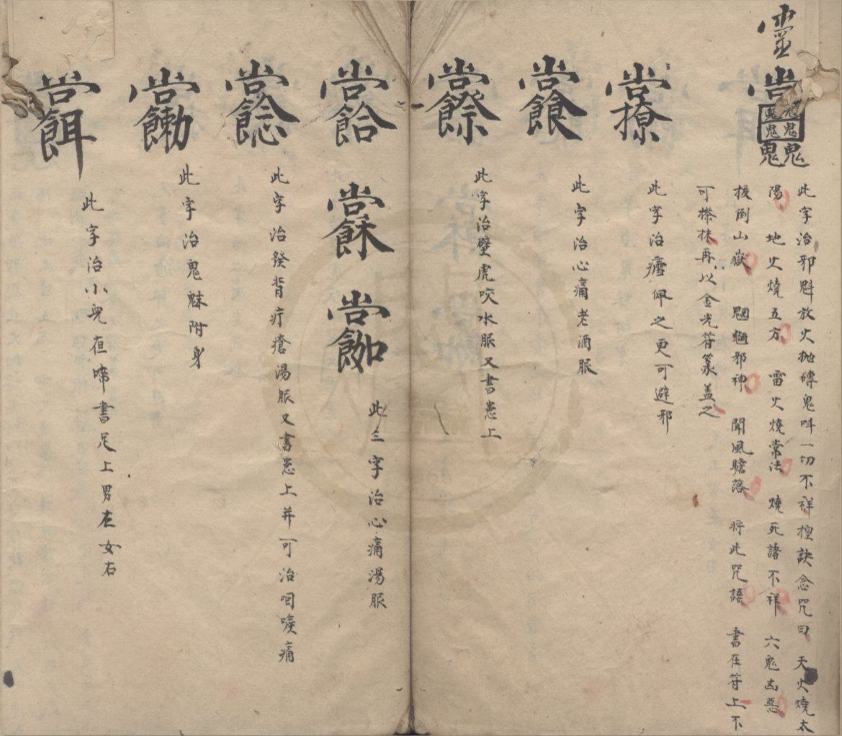 靈
此字治邪魁放火拋磚鬼叫一切不祥 訣念咒曰 天火燒太
陽 地火燒五方 雷火燒常法 燒死諸不祥 六鬼凶惡
扳倒山嶽 邪神 聞風膽落 將此咒語 書在符上不
可 抹再以金光符篆蓋之
此字治瘧佩之更可避邪
此字治心痛老酒服
此字治壁虎咬水服又書患上
此三字治心痛湯服
此字治發背疔瘡湯服又書患上并可治咽喉痛
此字治鬼魅附身
此字治小兒夜啼書足上男左女右